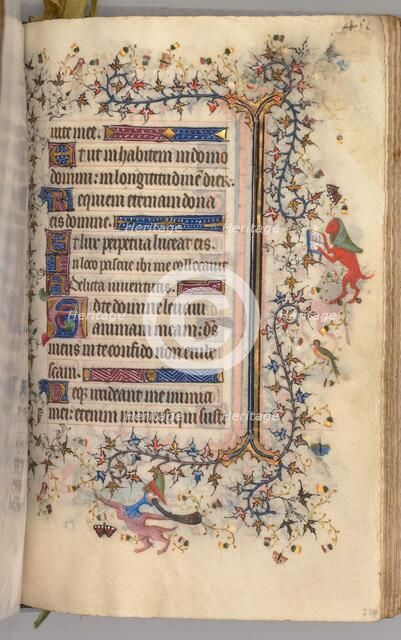 456
uite mee.
Et ut inhabitem in domo
domini: in longitudinē dierū.
Requiem eternam dona
eis domine.
Et lux perpetua luceat eis.
In loco pascue ibi me collocauit
Delicta iuuentutis.
Ad te domine leuaui
animam meam: ds
meus in te confido non erube
scam.
Neqz irrideant me inimici
mei: etenim uniuersi qui sust
Heritage
Heritage
Heritage
Heritage
Heritage
Heritage